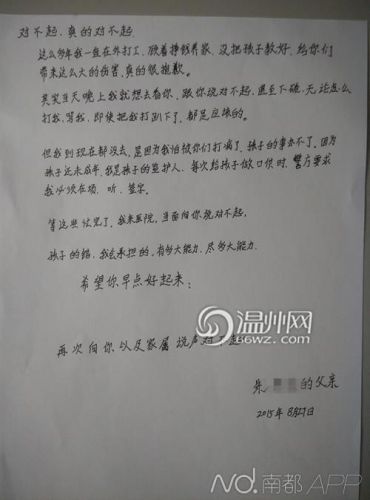 对不起,真的对不起.
这么多年我一直在外打工,顾着挣钱养家,没把孩子教好,给你们
带来这么大的伤害,真的很抱歉.
其实当天晚上我就想去看你,跟你说对不起,甚至下跪,无论怎么
打我,骂我,即使把我打趴下了,都是应该的.
但我到现在都没去,是因为我怕被你们打嘀了,孩子的事办不了.因为
孩子还未成年,我是孩子的监护人,每次给孩子做口供时,警方要求
我必须在场、听、签字.
等这些忙完了,我来医院,当面向你说对不起.
孩子的错,我去承担的,有多大能力,尽多大能力.
希望你早点好起来;
再次向你以及家属说声对不起
朱 的父亲
2015年8月27日
温州网
66wz.com
ND.南都APP